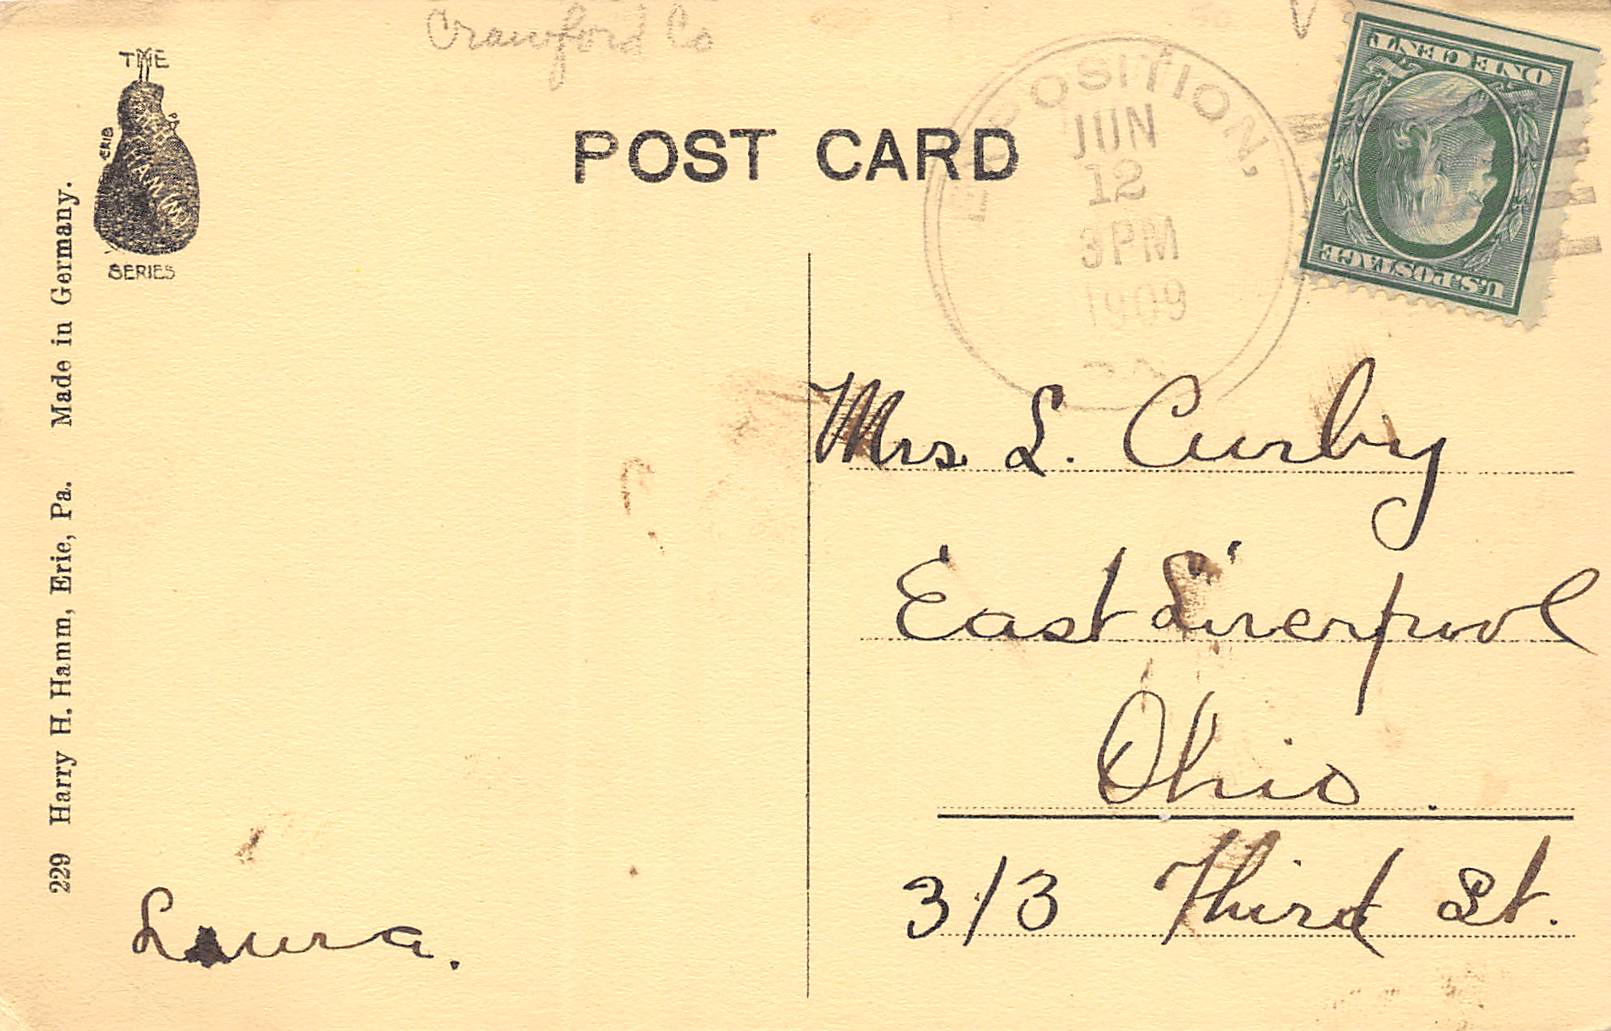 Crawford Co
THE
ERIE
HAMM
SERIES
POST CARD
EXPOSITION,
JUN
12
3PM
1909
PA.
ONE CENT
U.S. POSTAGE
229 Harry H. Hamm, Erie, Pa. Made in Germany.
Mrs L. Curby
East Liverpool
Ohio.
313 Third St.
Laura.